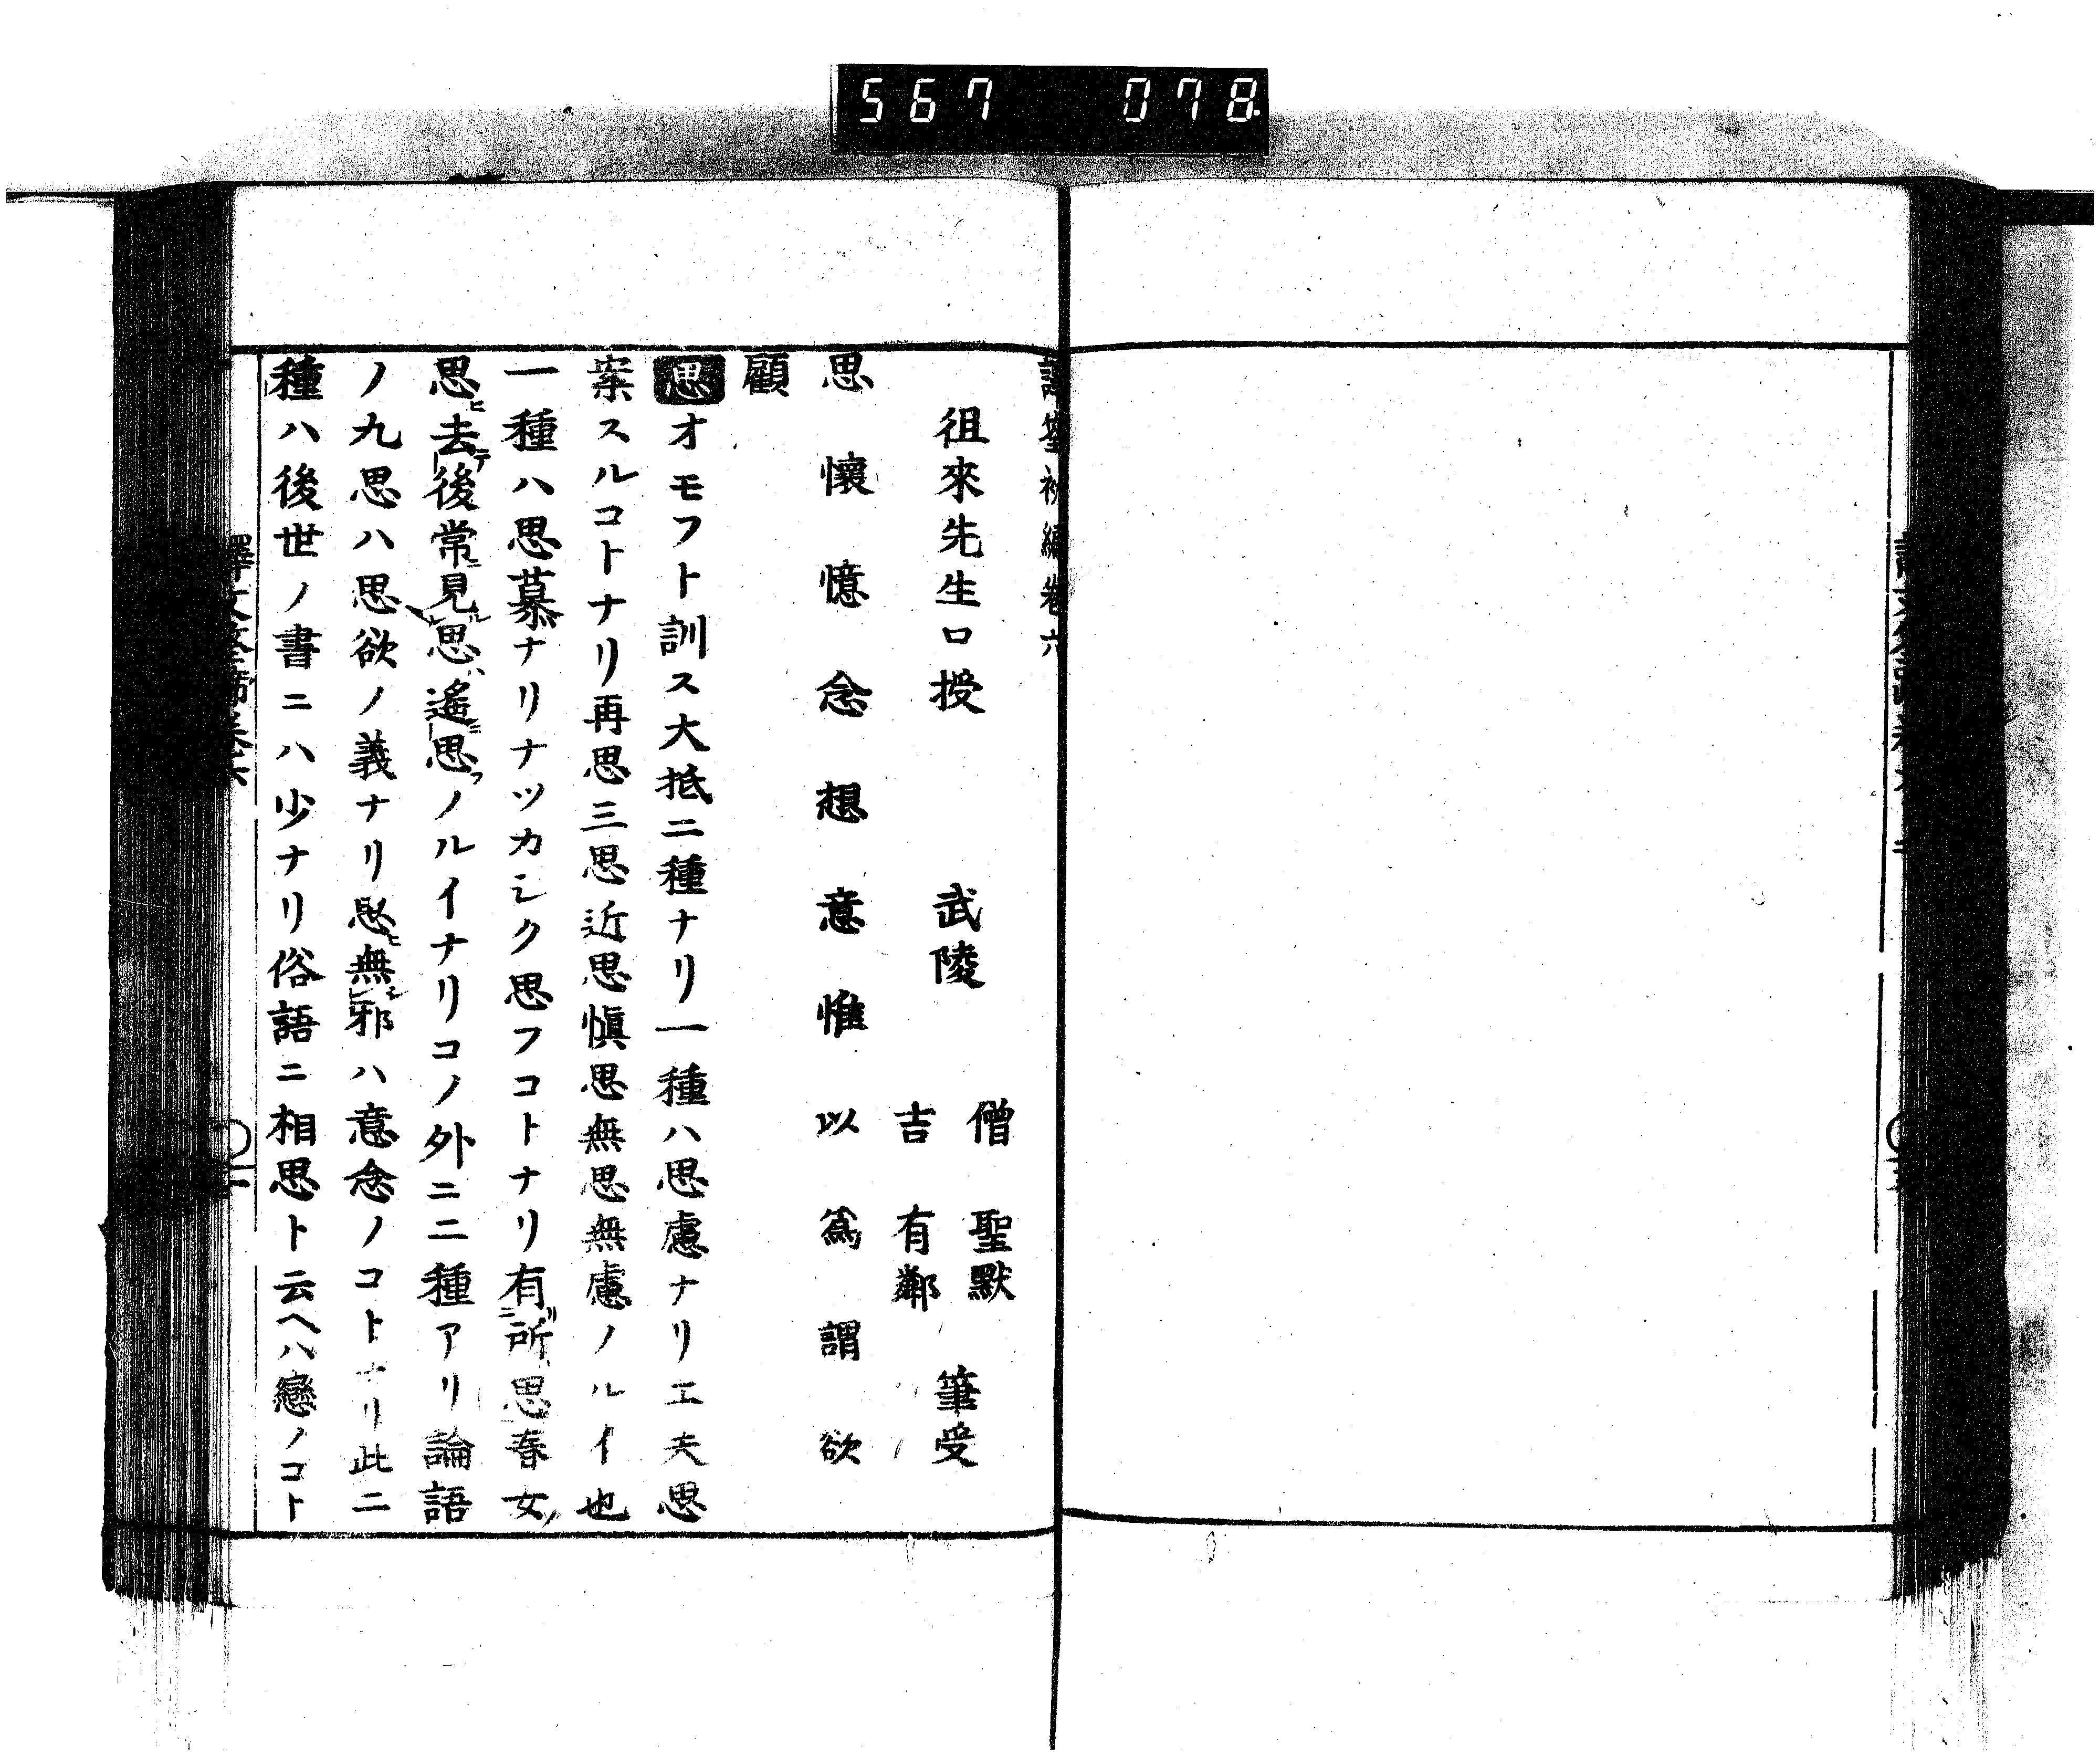 567 078
譯筌初編卷六
徂來先生口授 武陵 僧 聖默 筆受
吉 有鄰
思 懷 憶 念 想 意 惟 以 爲 謂 欲
顧
思オモフト訓ス大抵二種ナリ一種ハ思慮ナリ工夫思
案スルコトナリ再思三思近思愼思無思無慮ノルイ也
一種ハ思慕ナリナツカシク思フコトナリ有所思春女
思去後常見思遙思ノルイナリコノ外ニ二種アリ論語
ノ九思ハ思欲ノ義ナリ思無邪ハ意念ノコトナリ此二
種ハ後世ノ書ニハ少ナリ俗語ニ相思ト云ヘハ戀ノコト